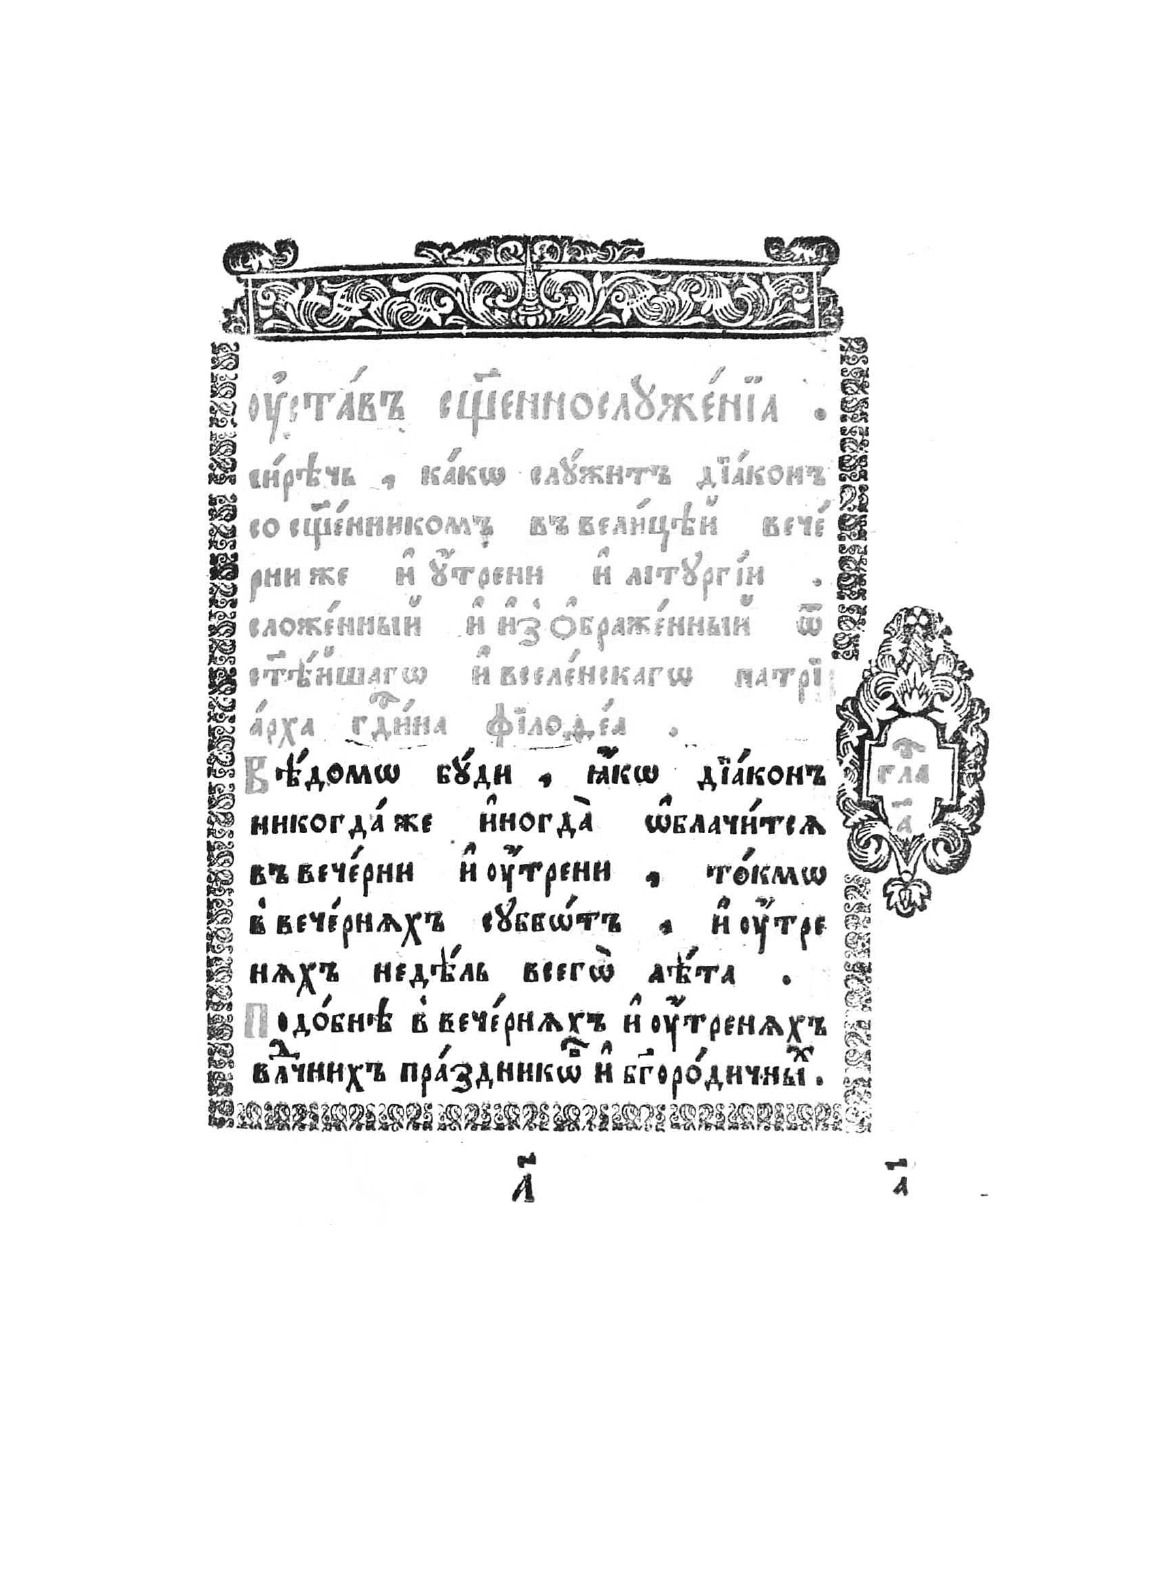 Оу҆ста́въ сщ҃еннослꙋже́нїѧ .
си́рѣчь , ка́кѡ слꙋ́житъ дїа́конъ
со сщ҃е́нникомъ въ вели́цѣй вече́
рни же и҆ ᲂу҆́трени и҆ лїтꙋргі́и .
сложе́нный и҆ и҆зѻбраже́нный ѿ
ст҃ѣ́йшагѡ и҆ вселе́нскагѡ патрї
а́рха гдⷭ҇и́на фїлоѳе́а .
Вѣ́домѡ бꙋ́ди , ꙗ҆́кѡ дїа́конъ
никогда́ же и҆ногда̀ ѡ҆блачи́тсѧ
въ вече́рни и҆ ᲂу҆́трени , то́кмѡ
в̾ вече́рнѧхъ сꙋббѡ́тъ , и҆ ᲂу҆́тре
нѧхъ недѣ́ль всегѡ̀ лѣ́та .
Подо́бнѣ в̾ вече́рнѧхъ и҆ ᲂу҆́тренѧхъ
влⷣчнихъ пра́здникѡⷡ и҆ бг҃оро́дичныⷯ .
глаⷡ
а҃
л҃
а҃